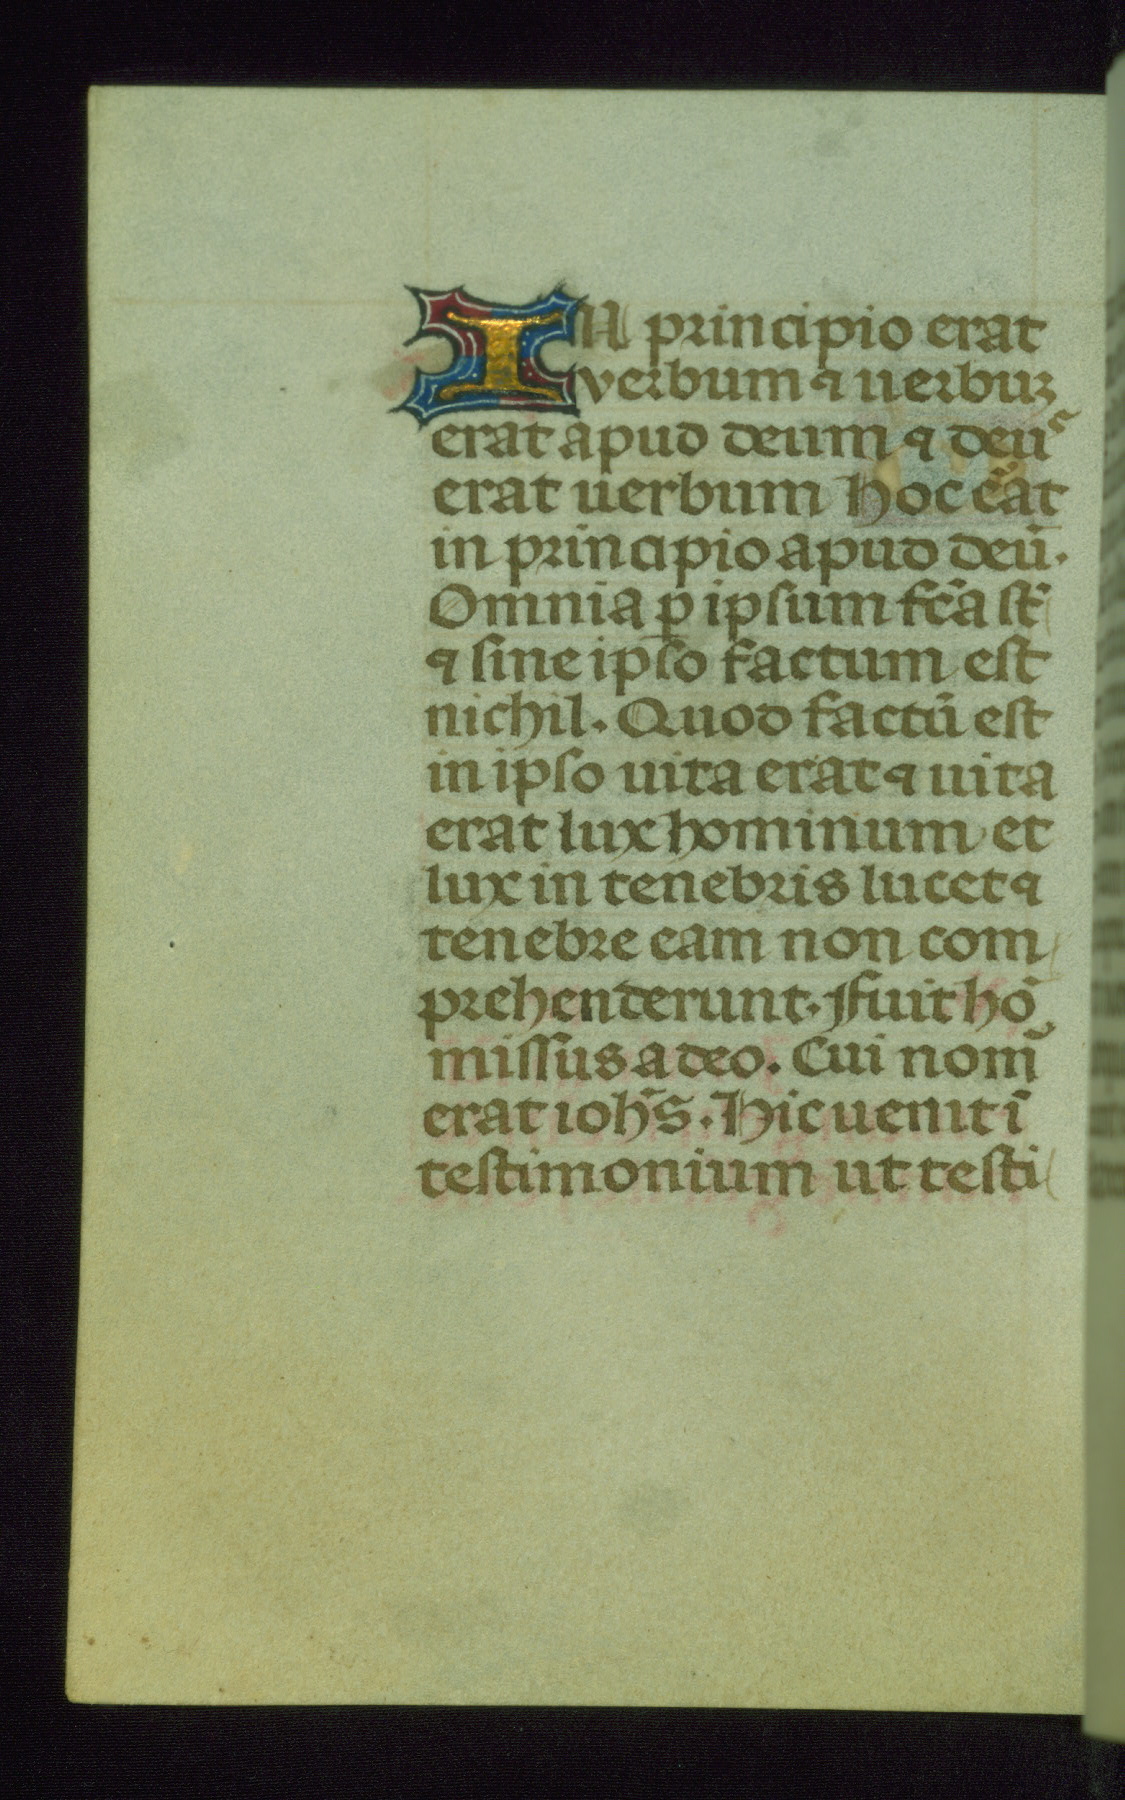 IN principio erat
verbum ⁊ uerbuꝫ
erat apud deum ⁊ deuˢ
erat uerbum Hoc eãt
in principio apud deū.
Omnia ꝑ ipsum fc̄a st̄
⁊ sine ipso factum est
nichil. Quod factū est
in ipso uita erat ⁊ uita
erat lux hominum et
lux in tenebris lucet ⁊
tenebre eam non com
prehenderunt. Fuit ho᷒
missus a deo. Cui nom̄
erat ioh̄s. Hic uenit ī
testimonium ut testi